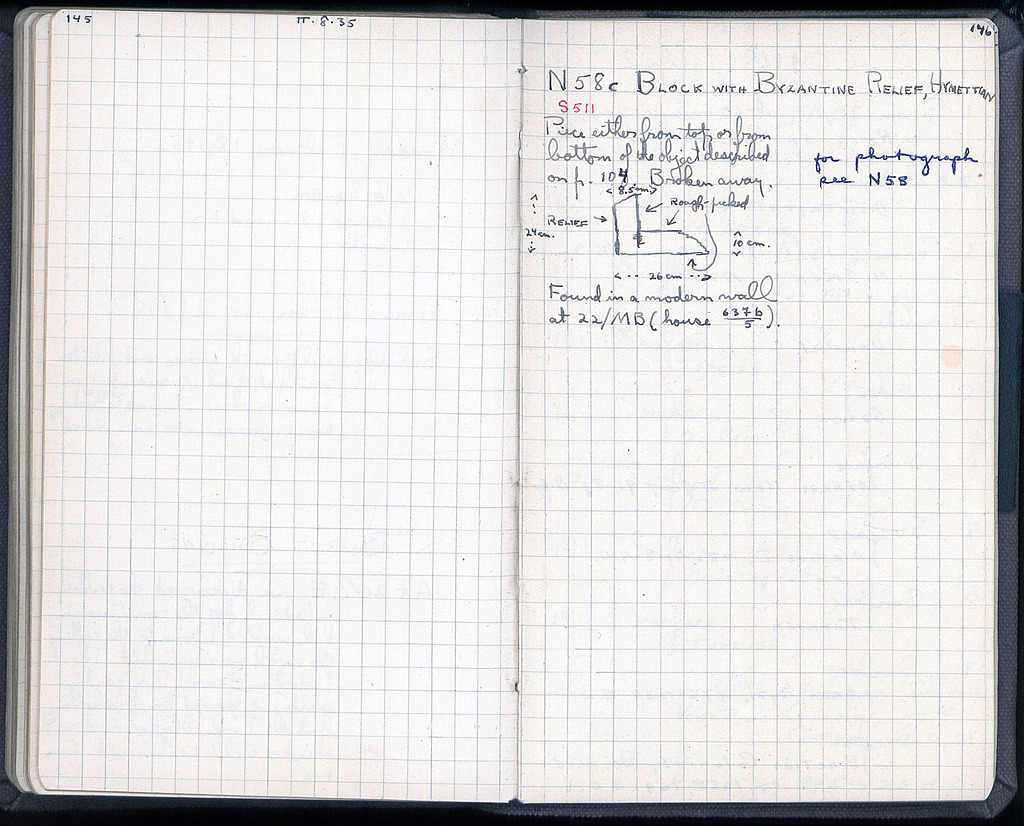 145
II·8·35
146
N 58c BLOCK WITH BYZANTINE RELIEF, HYMETTIAN
S 511
Piece either from top, or from
bottom of the object described
on p. 104. Broken away.
for photograph
see N 58
8.5cm.
Rough-picked
RELIEF
24cm.
10 cm.
26cm
Found in a modern wall
at 22/MB (house 637b/5).